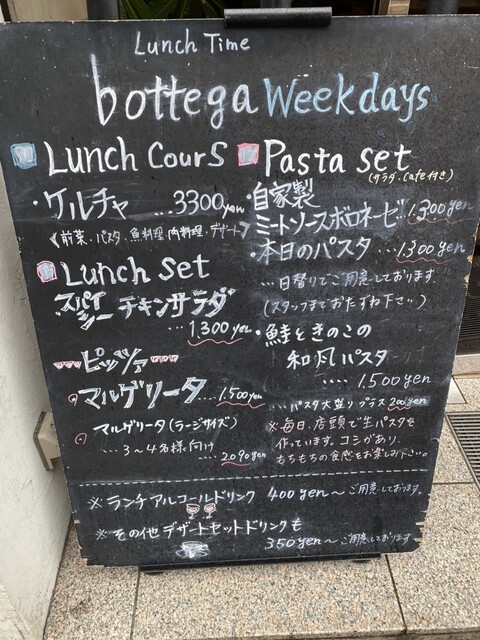 Lunch Time
bottega Weekdays
Lunch CourS
・ケルチャ ...3300yen
《前菜・パスタ・魚料理・肉料理・デザート》
Lunch set
・スパイシーチキンサラダ
...1,300yen
ピッツァ
マルゲリータ ...1,500yen
マルゲリータ(ラージサイズ)
...3〜4名様向け ...2,090yen
Pasta set
(サラダ・Cafe付き)
・自家製
ミートソースボロネーゼ...1,300yen
・本日のパスタ ...1,300yen
...日替りでご用意しております
(スタッフまでおたずね下さい)
・鮭ときのこの
和風パスタ
....1,500yen
...パスタ大盛りプラス200yen
※毎日、店頭で生パスタを
作っています。コシがあり、
もちもちの食感をお楽しみ下さい。
※ランチアルコールドリンク 400yen〜ご用意しております。
※その他デザートセットドリンクも
350yen〜ご用意しております